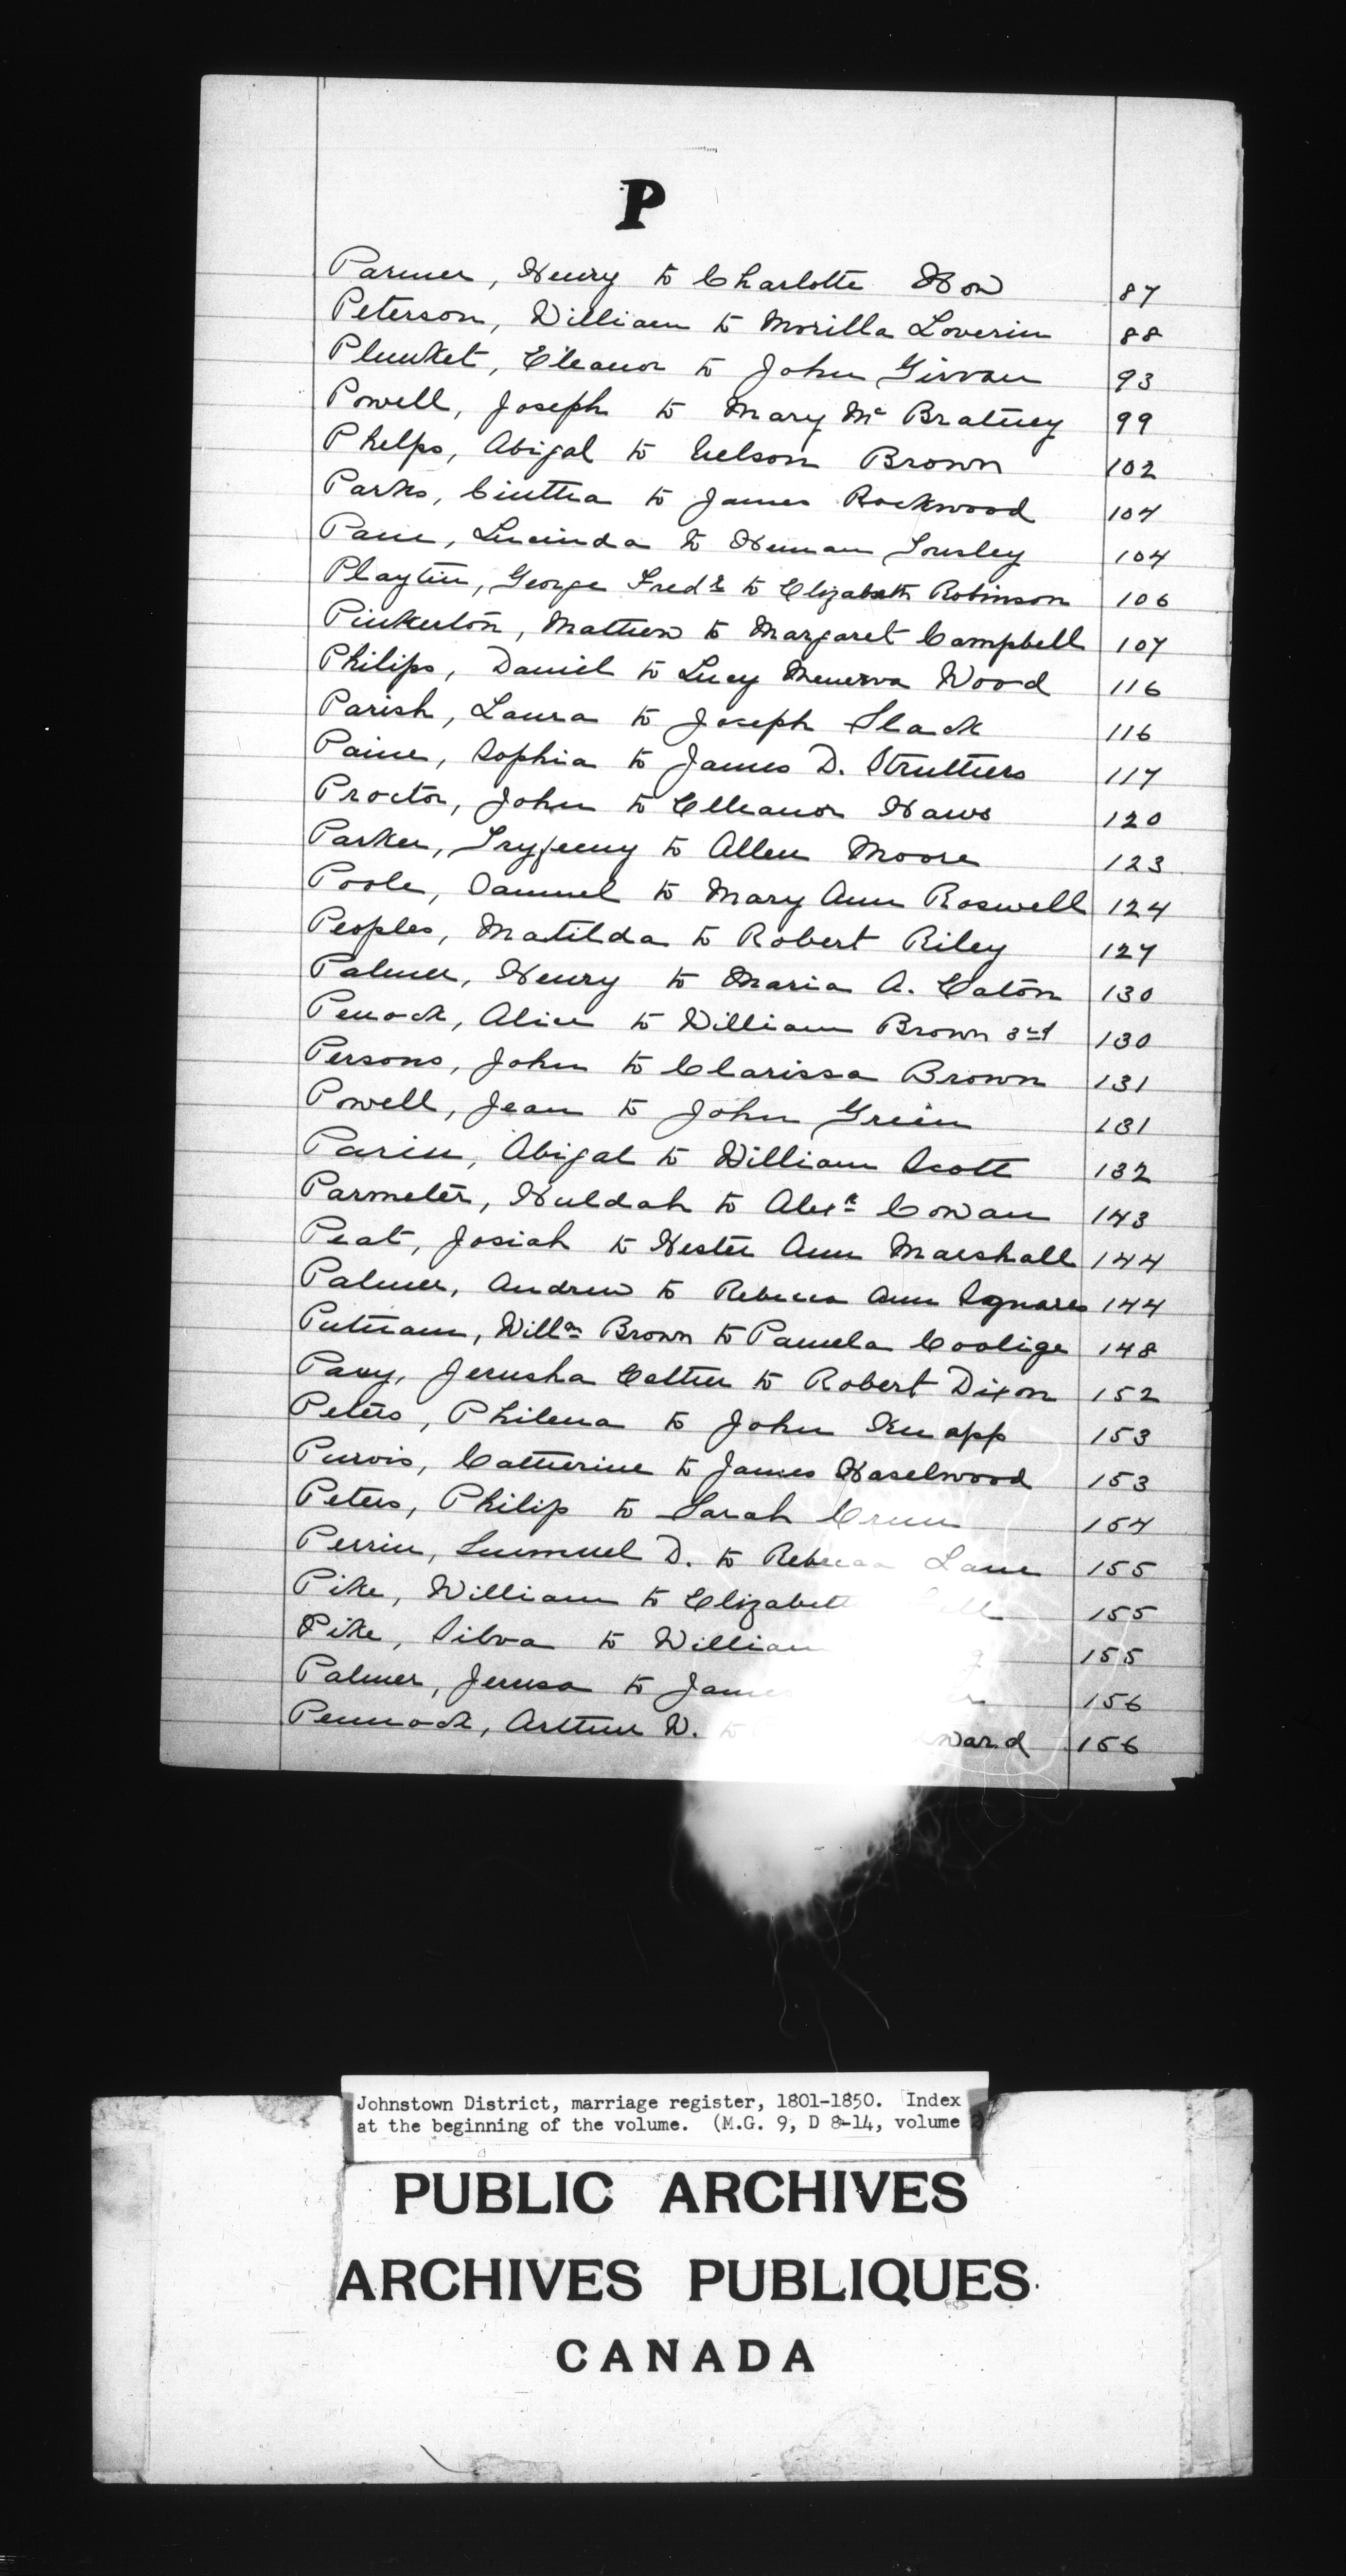 P
Parmer, Henry to Charlotte How 87
Peterson, William to Morilla Loverin 88
Plunket, Eleanor to John Girvan 93
Powell, Joseph to Mary Mc Bratney 99
Phelps, Abigal to Nelson Brown 102
Parks, Cinthia to James Rockwood 104
Pane, Lucinda to Heman Tousley 104
Playtin, George Fredk to Elizabeth Robinson 106
Pinkerton, Mathew to Margaret Campbell 107
Philips, Daniel to Lucy Menerva Wood 116
Parish, Laura to Joseph Slack 116
Paine, Sophia to James D. Struthers 117
Proctor, John to Elleanor Haws 120
Parker, to Allen Moore 123
Poole, Samuel to Mary Ann Roswell 124
Peoples, Matilda to Robert Riley 127
Palmer, Henry to Maria A. Eaton 130
Penock, Alice to William Brown 3rd 130
Persons, John to Clarissa Brown 131
Powell, Jean to John Green 131
Abigal to William Scott 132
Parmeter, Huldah to Alexr Cowan 143
Peat, Josiah to Hester Ann Marshall 144
Palmer, Andrew to Rebecca Ann Squares 144
Putnam, Willm Brown to Pamela Coolige 148
Jerusha Esther to Robert Dixon 152
Peters, Philena to John Knapp 153
Purvis, Catherine to James Haselwood 153
Peters, Philip to Sarah 154
Perrin, Lumuel D. to Rebecca Lane 155
Pike, William to Elizabeth 155
Pike, Silva to William 155
Palmer, Jerusa to James 156
Pennock, Arthur W. to ward 156
Johnstown District, marriage register, 1801-1850. Index
at the beginning of the volume. (M.G. 9, D 8-14, volume
PUBLIC ARCHIVES
ARCHIVES PUBLIQUES
CANADA